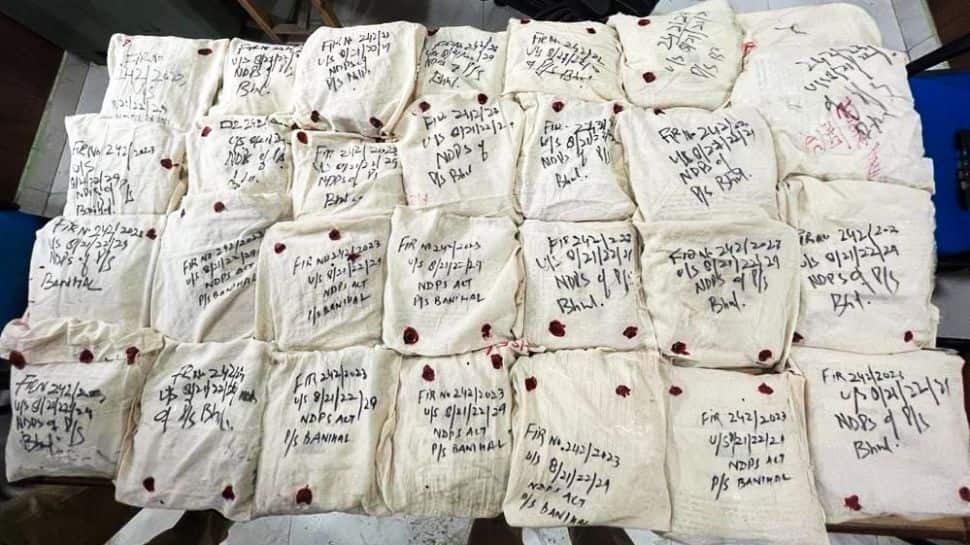 FIR No
242/2023
8/21/22/29
FIR No 242/23
u/s 8/21/22
NDPS of P/S
Bhl.
FIR No 242/2023
u/s 8/21/22/29
NDPS of
P/S Bhl.
u/s 8/21/22/29
NDPS of P/S
Bhl.
FIR No. 242/23
u/s 8/21/22/29
of P/S Bhl.
8/21/22
P/S
FIR No 242/2023
u/s
8/21/22/29
NDPS of P/S
Banihal
242
8/21/22/29
NDPS of P/S
FIR 242/2023
u/s 8/21/22/29
NDPS of P/S
Bhl.
FIR 242/2023
u/s 8/21/22/29
NDPS of
P/S Bhl
FIR
u/s 8/21/22/29
NDPS of P/S
Bhl.
FIR No 242/23
u/s 8/21/22/29
NDPS of P/S
Bhl.
FIR No 242/2023
u/s 8/21/22/29
NDPS of P/S
BANIHAL
FIR No 242/2023
u/s 8/21/22/29
NDPS ACT
P/S BANIHAL
FIR No 242/2023
u/s 8/21/22/29
NDPS ACT
P/S BANIHAL
FIR No 242/2023
u/s 8/21/22/29
NDPS ACT
P/S BANIHAL
FIR 242/223
u/s 8/21/22/29
NDPS of P/S
Bhl.
FIR No 242/2023
u/s 8/21/22/29
NDPS of P/S
Bhl.
FIR No 242/202
u/s 8/21/22/29
NDPS of P/S
Bhl.
FIR No 242/2023
u/s 8/21/22/29
NDPS of P/S
Bhl.
FIR No 242/23
u/s 8/21/22/29 NDPS
of P/S Bhl.
FIR 242/2023
u/s 8/21/22/29
NDPS ACT
P/S BANIHAL
FIR No 242/2023
u/s 8/21/22/29
NDPS ACT
P/S BANIHAL
FIR No. 242/2023
u/s 8/21/22/29
NDPS ACT
P/S BANIHAL
FIR 242/2023
u/s 8/21/22/29
NDPS ACT
P/S BANIHAL
FIR 242/2023
u/s 8/21/22/29
NDPS of P/S
Bhl.